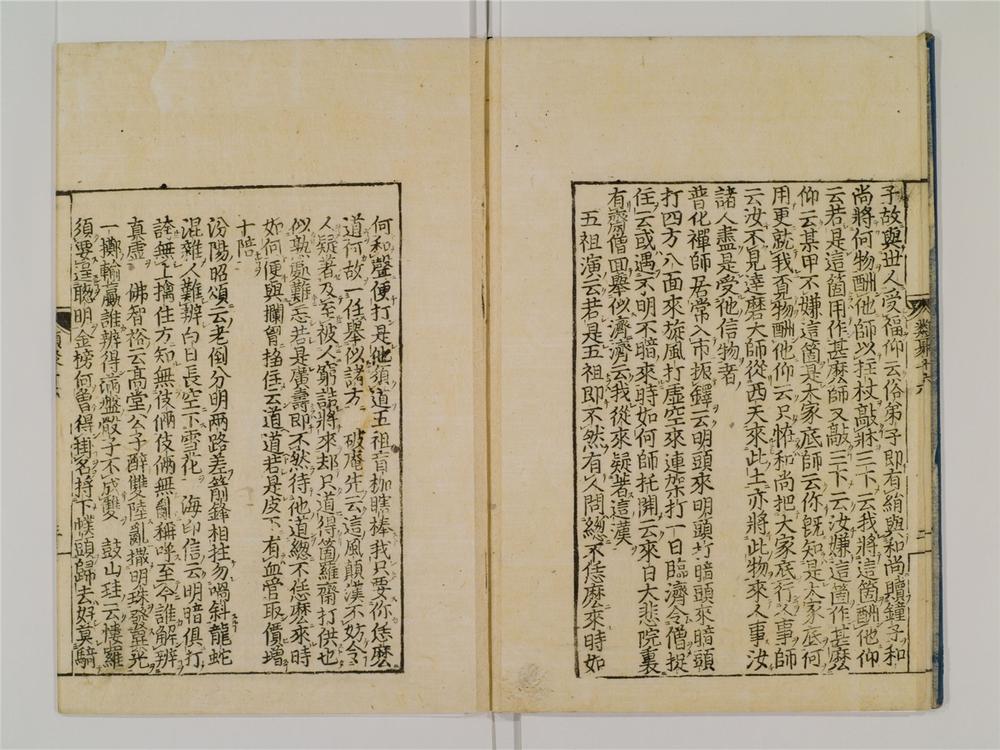 子故與丗人受福仰云俗弟子即有絹與和尚贖鐘子和
尚將何物酬他師以拄杖敲牀三下云我將這箇酬他仰
云若是這箇用作甚麼師又敲三下云汝嫌這箇作甚麼
仰云某甲不嫌這箇是大家底師云你旣知是大家底何
用更就我覔物酬他仰云只恠和尚把大家底行人事師
云汝不見達磨大師從西天來此土亦將此物來人事汝
諸人盡是受他信物者
普化禪師居常入市振鐸云明頭來明頭打暗頭來暗頭
打四方八面來旋風打虛空來連架打一日臨濟令僧捉
住云或遇不明不暗來時如何師托開云來日大悲院裏
有齋僧回舉似濟濟云我從來疑著這漢
五祖演云若是五祖即不然有人問緫不恁麼來時如
何和聲便打是他須道五祖盲枷瞎棒我只要你恁麼
道何故一任舉似諸方 破庵先云這風顛漢不妨令
人疑著及至被人窮詰將來却只道得箇羅齋打供也
似熟處難忘若是廣壽即不然待他道緫不恁麼來時
如何便與攔胷搊住云道道若是皮下有血管取價增
十陪
汾陽昭頌云老倒分明兩路差箭鋒相拄勿喎斜龍蛇
混雜人難辨白日長空下雪花 海印信云明暗俱打
誇無上擒住方知無伎倆伎倆無亂稱呼至今誰解辨
眞虛 佛智裕云高堂公子醉雙陸亂撒明珠發
一擲輸贏誰辨得滿盤骰子不成雙 鼓山珪云樓羅
須要逞聰明金榜何曾得掛名捋下幞頭歸去好莫騎